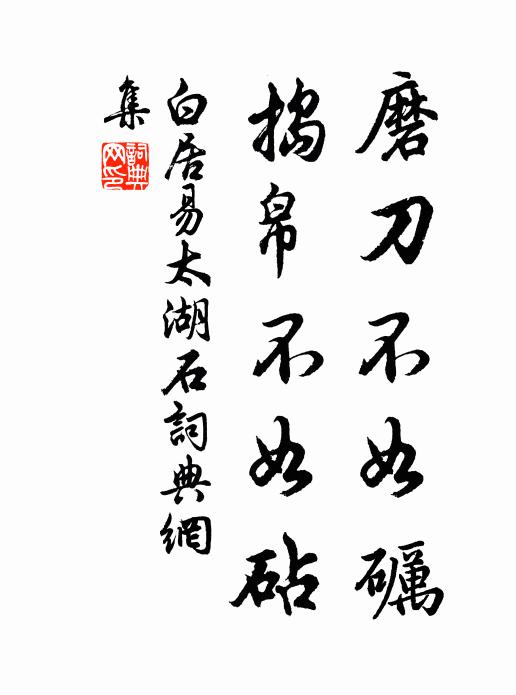 磨刀不如礪
搗帛不如砧
白居易太湖石詞典網
集
詞典網印